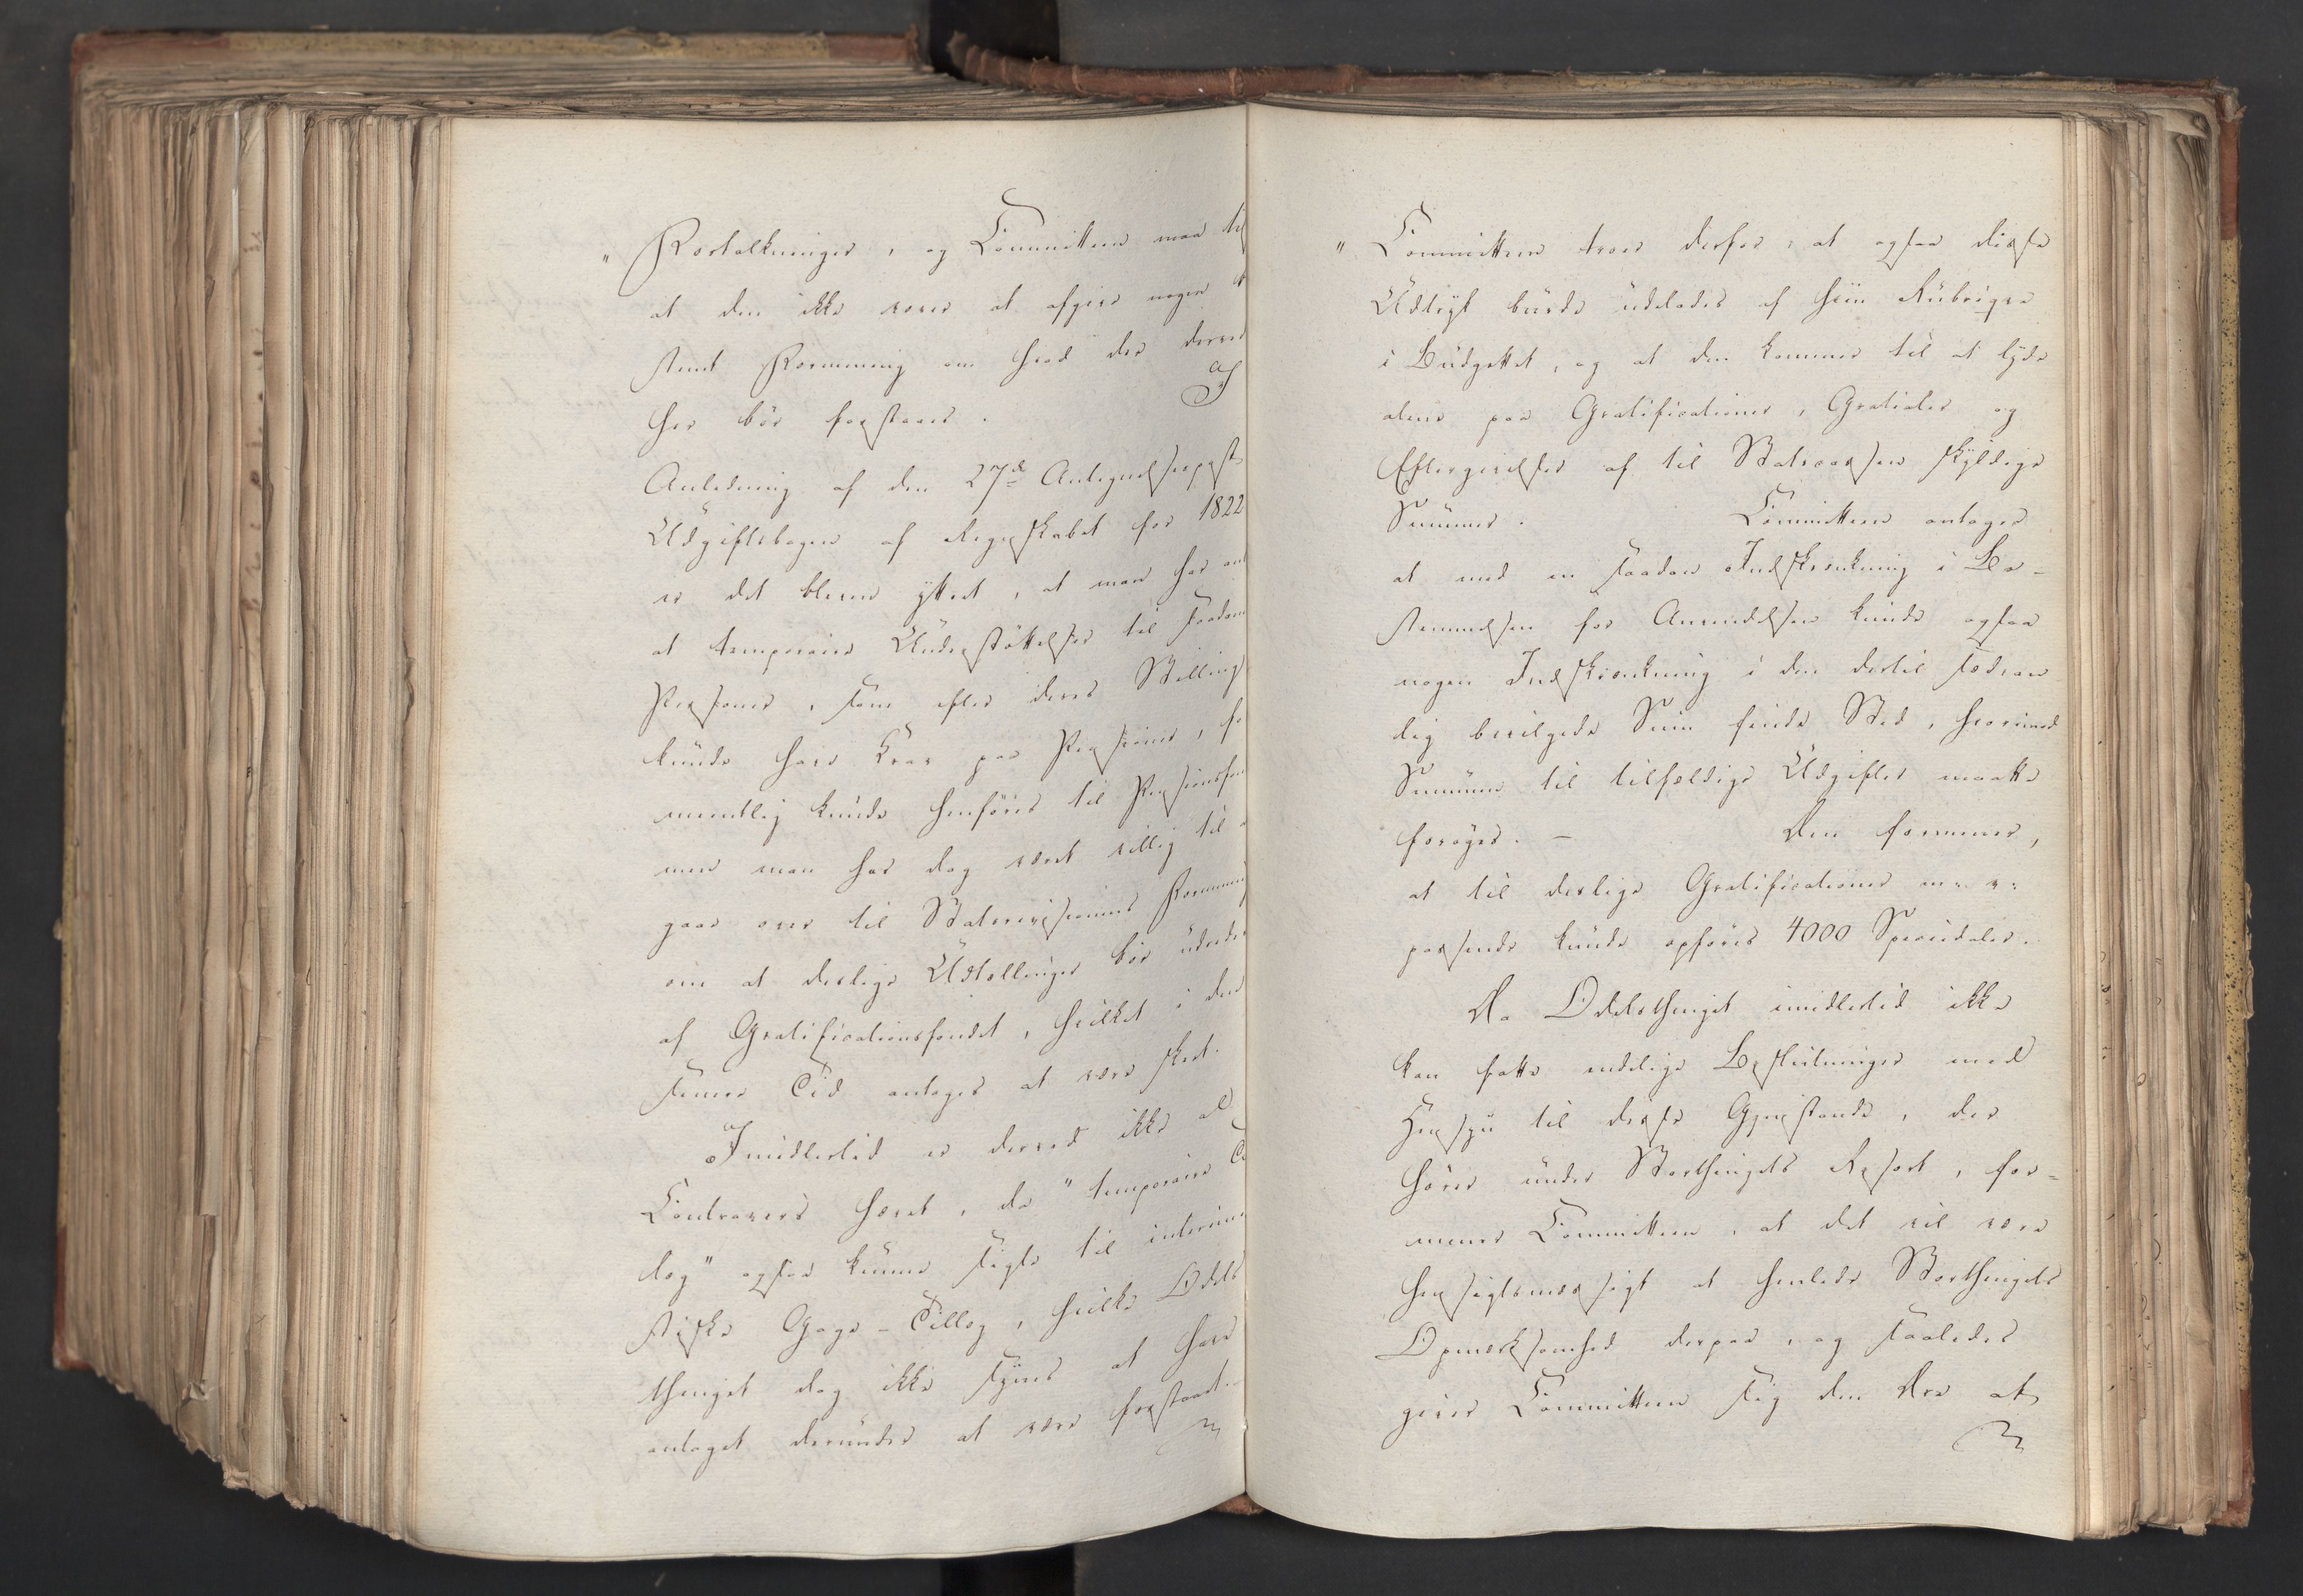 " Fortolkninger, og Committeen maa til
at den ikke vover at afgive nogen
stemt Formening om hvad der derved
her bör forstaaes. I
Anledning af den 27de Antegnelsespost
Udgiftsbogen af Regnskabet for 1822
er det bleven yttret, at man har
at temporaire Understöttelser til saadan
Personer, som efter deres Stilling
kunde have Krav paa Pension,
mentlig kunde henföres til Pensionsfon
men man har dog været villig til
gaae over til Statsrevisionens Formening
om at deslige Udtællinger bör udredes
af Gratificationsfondet, hvilket i den
senere Tid antages at være skeet.
Imidlertid er derved ikke al
Controvers hævet, da "temporaire Til
læg" ogsaa kunne sigte til interimi
stiske Gage-Tillæg, hvilke Odels
thinget dog ikke synes at have
antaget derunder at være forstaaet.
" Committeen troer derfor, at ogsaa disse
Udtryk burde udelades af hiin Rubrique
i Budgettet, og at den kommer til at lyde
alene paa Gratificationer, Gratialer og
Eftergivelser af til Statscassen skyldige
Summer. Committeen antager
at med en saadan Indskrænkning i Be-
stemmelsen for Anvendelsen kunde ogsaa
nogen Indskrænkning i den dertil sædvan
lig bevilgede Sum finde Sted, hvorimod
Summen til tilfældige Udgifter maatte
foröges. — Den formener,
at til deslige Gratificationer m: v:
passende kunde opföres 4000 Speciedaler.
Da Odelsthinget imidlertid ikke
kan fatte endelige Beslutninger med
Hensyn til disse Gjenstande, der
hörer under Storthingets Resort, for-
mener Committeen, at det vil være
hensigtsmæssigt at henlede Storthingets
Opmærksomhed derpaa, og saaledes
giver Committeen sig den Ære at